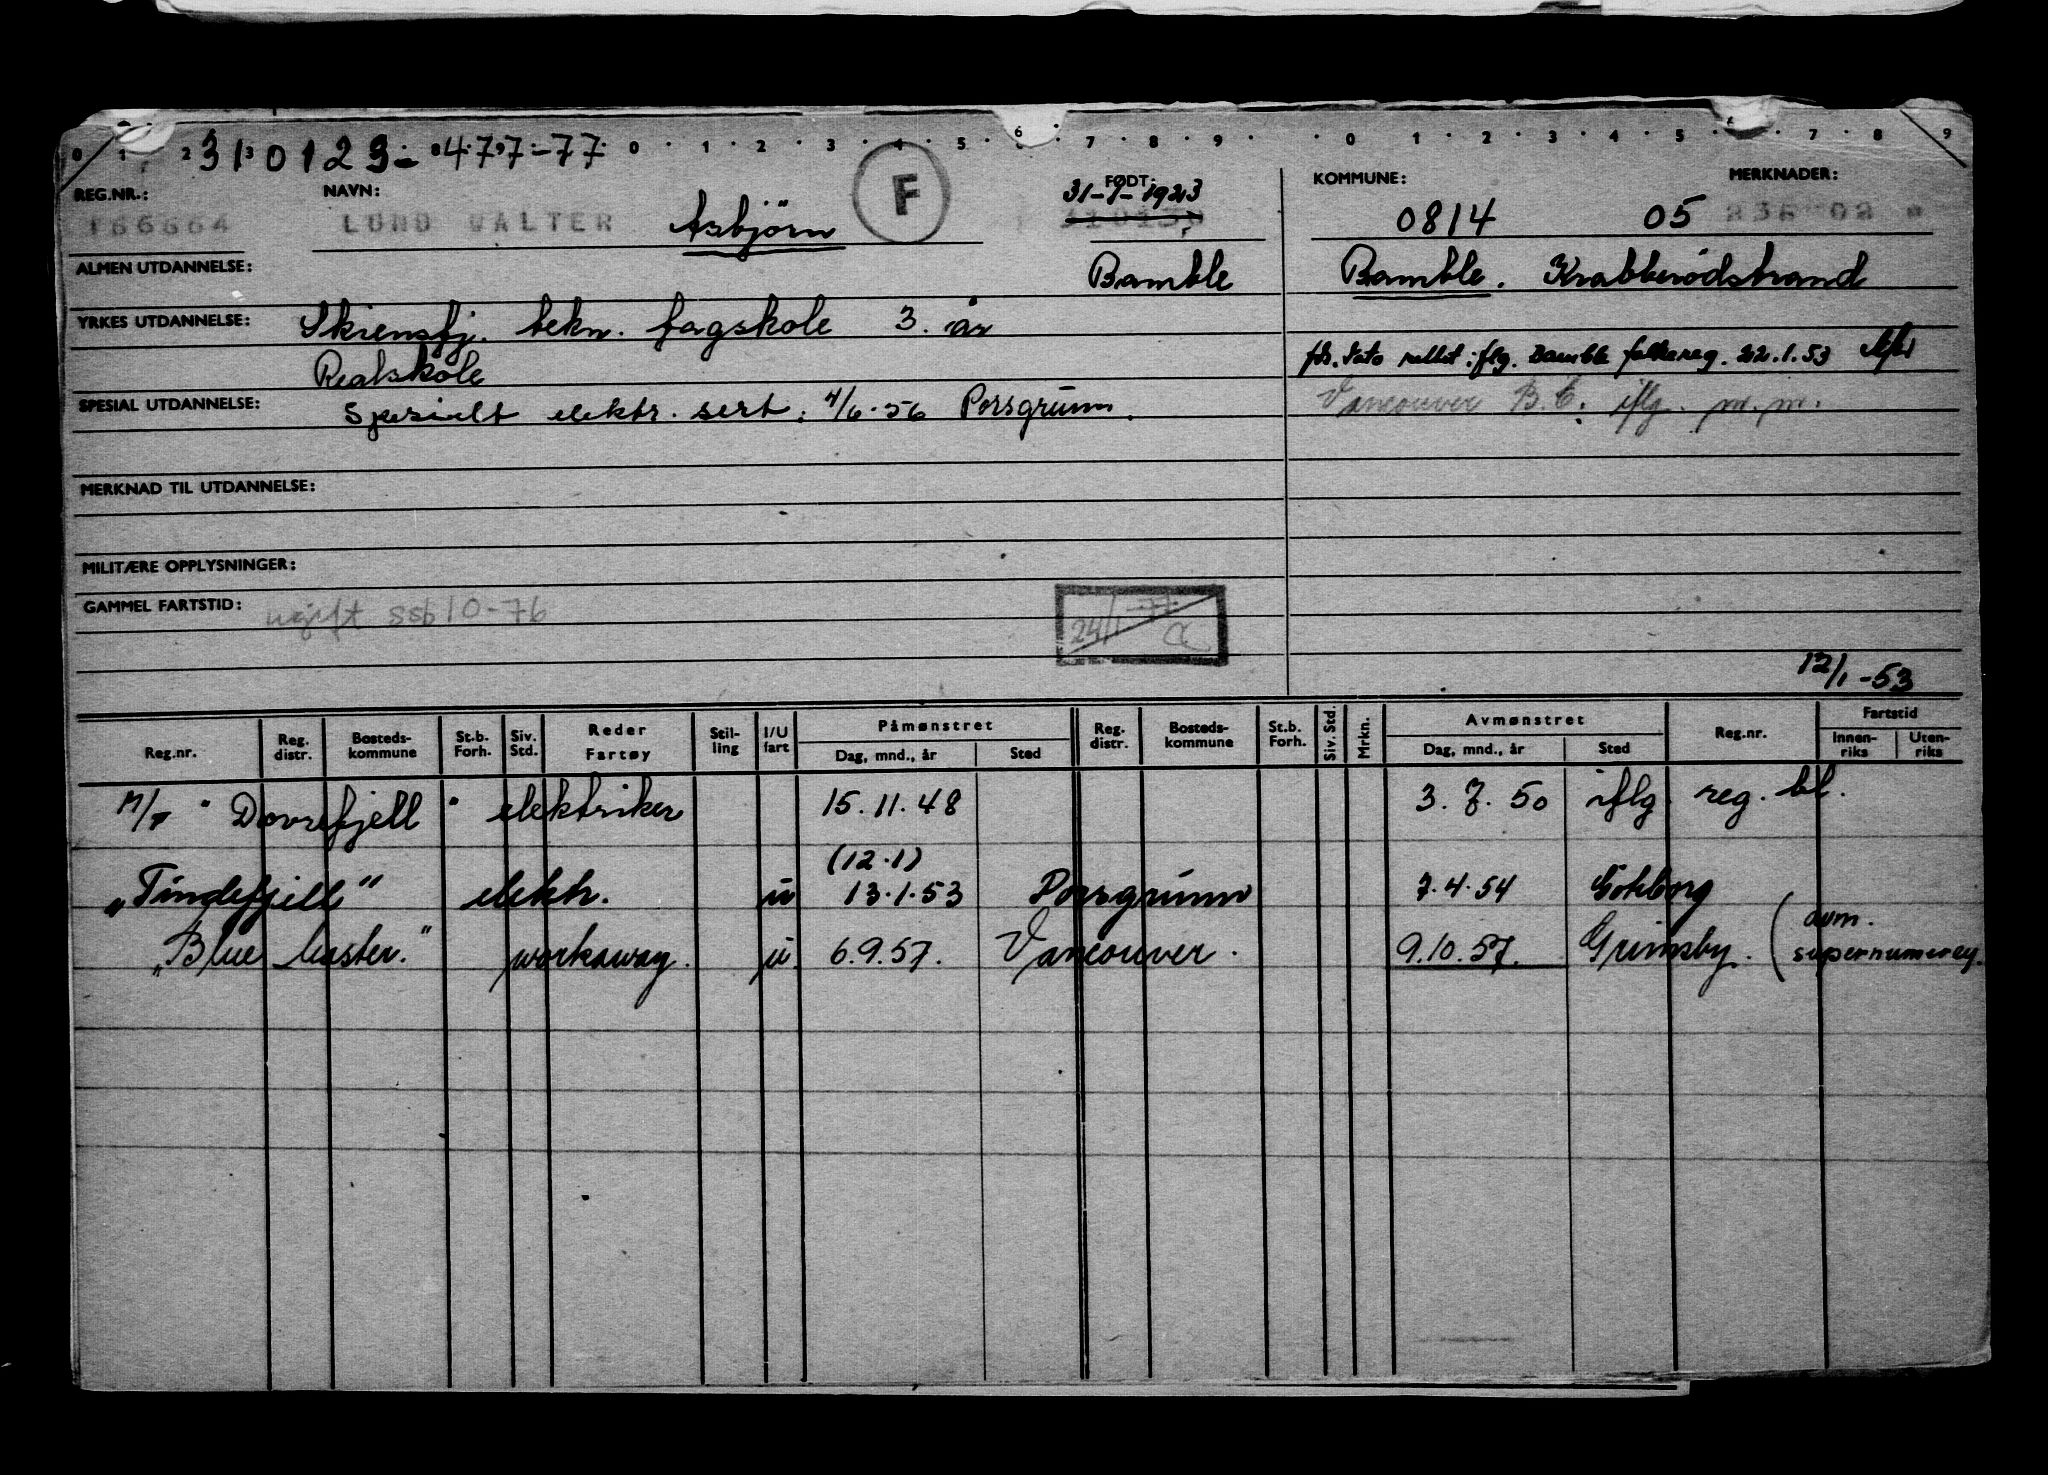 0 1 2 3 0 1 2 3 4 5 6 7 8 9 0 1 2 3 4 5 7 8 9
310123 - 477-77
REG.NR.: NAVN: FØDT: KOMMUNE: MERKNADER:
166664 LUND WALTER Asbjörn F 31-1-1923 0814 05
ALMEN UTDANNELSE: Bamble Bamble. Krabberödstrand
YRKES UTDANNELSE: Skiensfj. tekn. fagskole 3. år
Realskole fds. dato rettet iflg. Bamble folkereg. 22.1.53
SPESIAL UTDANNELSE: Spesielt elektr. sert. 4/6-56 Porsgrunn. Vancouver B.C. iflg. m.m.
MERKNAD TIL UTDANNELSE:
MILITÆRE OPPLYSNINGER:
GAMMEL FARTSTID: ugift ssb 10-76 24/1-77 a
12/1-53
Reg.nr. Reg. distr. Bosteds- kommune St.b. Forh. Siv. Std. Reder Fartøy Stil- ling I/U fart Påmønstret Dag, mnd., år Sted Reg. distr. Bosteds- kommune St.b. Forh. Siv. Std. Mrkn. Avmønstret Dag, mnd., år Sted Reg.nr. Fartstid Innen- riks Uten- riks
M/T "Dovrefjell" elektriker 15.11.48 3.7.50 iflg. reg. bl.
(12.1)
"Tindefjell" elektr. u 13.1.53 Porsgrunn 7.4.54 Göteborg
"Blue Master." workaway. u 6.9.57. Vancouver. 9.10.57. Grimsby. (avm. supernumerey.